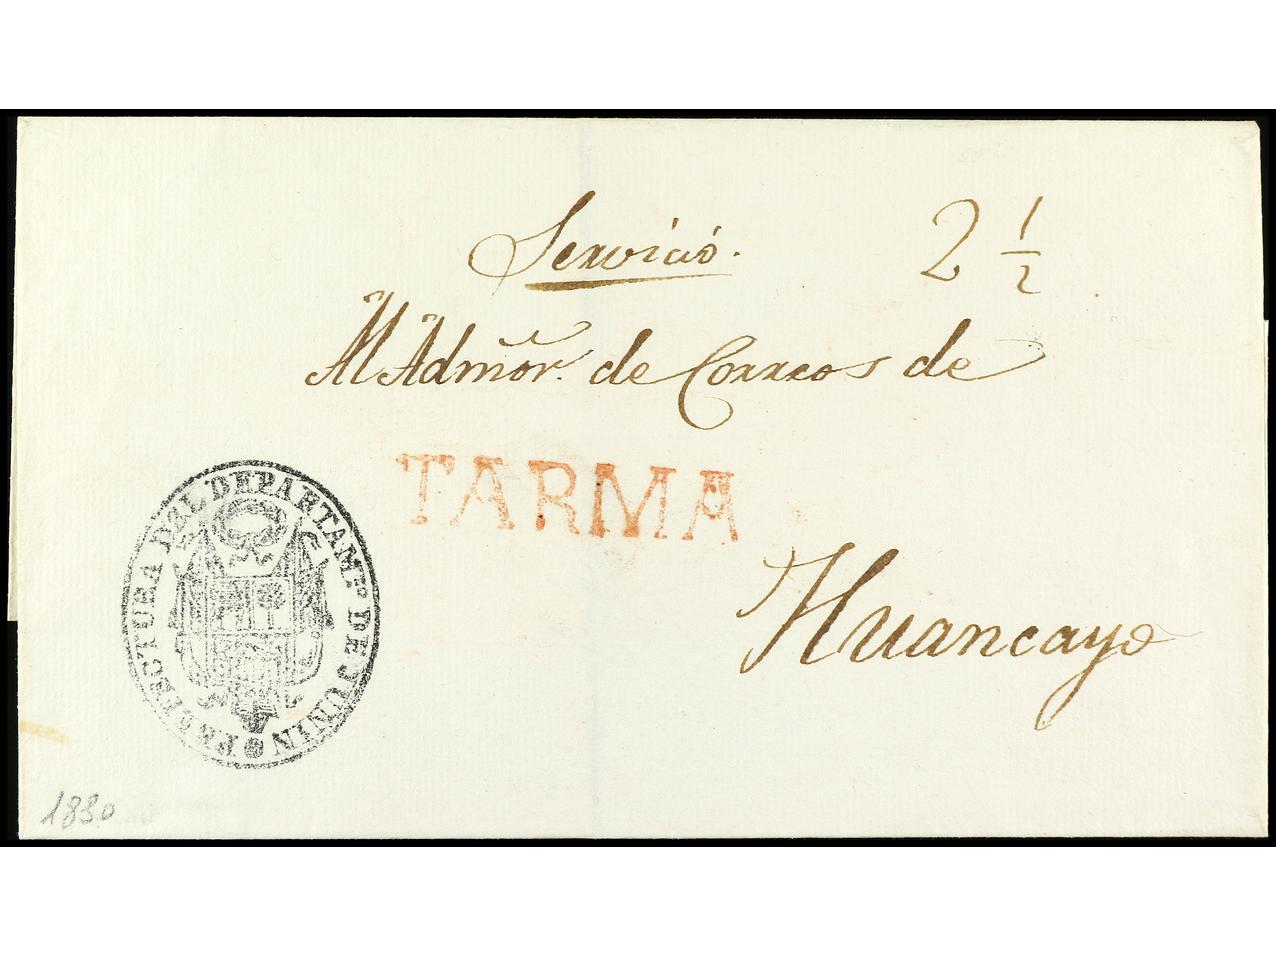 Servicio. 2 1/2
Al Admõr. de Correos de
TARMA
Huancayo
PREFECTURA DEL DEPARTAMTO. DE JUNIN
1830